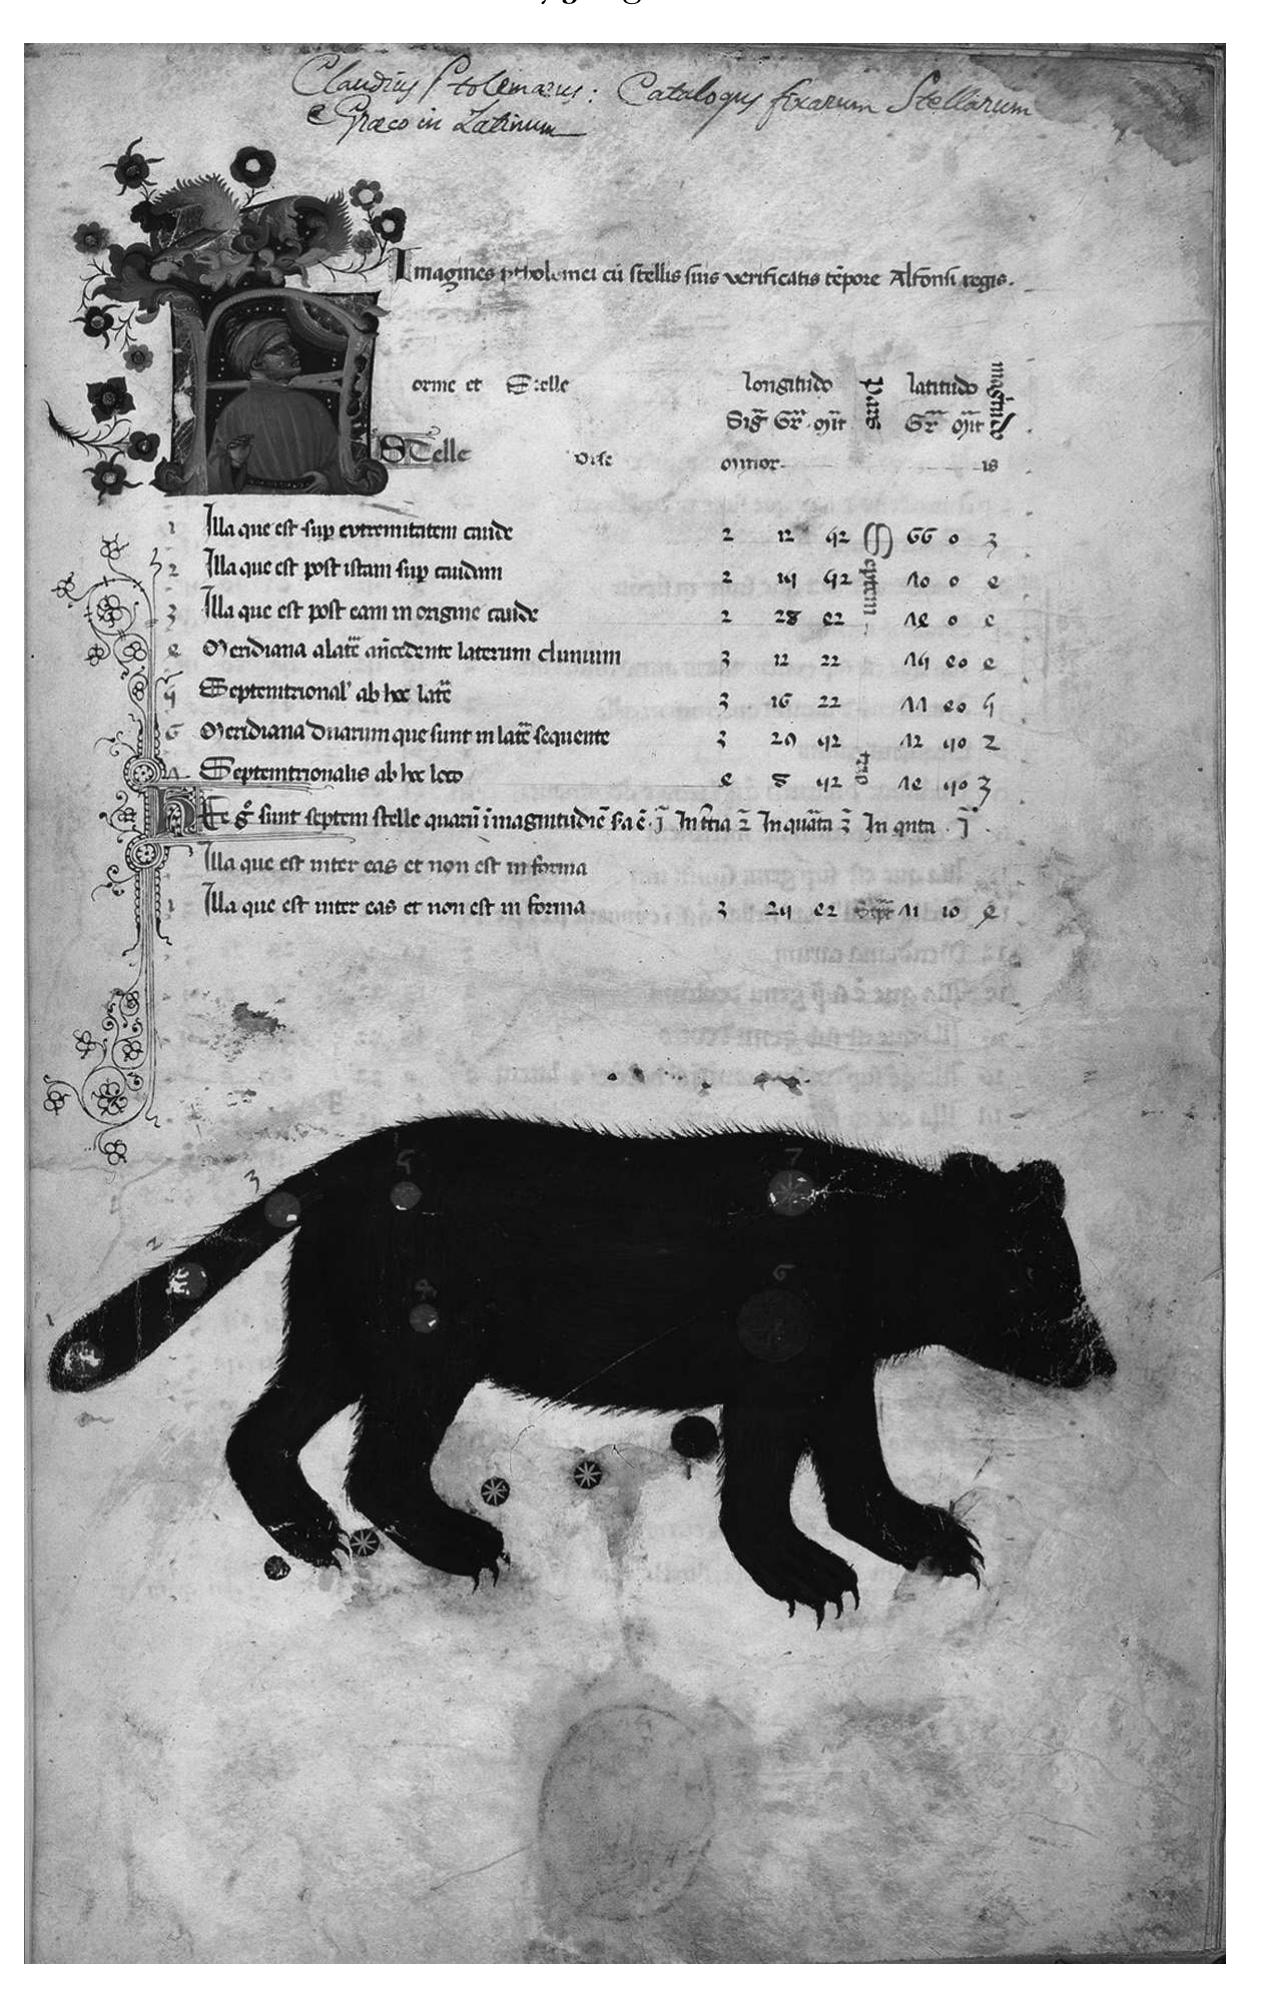 Claudius Ptolemæus: Catalogus fixarum Stellarum
e Græco in Latinum
Imagines ptholomei cū stellis suis verificatis tēpore Alfonsi regis.
orme et Stelle longitudo Pars latitudo magnitudo
Sig Gr mīt Gr mīt
STelle vrse minor is
1 Illa que est sup extremitatem caude 2 12 42 Septem 66 0 3
2 Illa que est post istam sup caudam 2 14 42 10 0 e
3 Illa que est post eam in origine caude 2 28 e2 1e 0 e
e Meridiana a latē añcedente laterum clunium 3 12 22 14 e0 e
4 Septemtrional' ab hoc latē 3 16 22 11 e0 4
6 Meridiana duarum que sunt in latē sequente 3 20 42 trio 12 40 2
Λ Septemtrionalis ab hoc loco e 8 42 1e 40 3
Hee g sunt septem stelle quarū ī magnitudīe In quarta 3 In quta . j .
Illa que est inter eas et non est in forma
1 Illa que est inter eas et non est in forma 3 24 e2 11 10 e
1
2
3
4
5
6
7